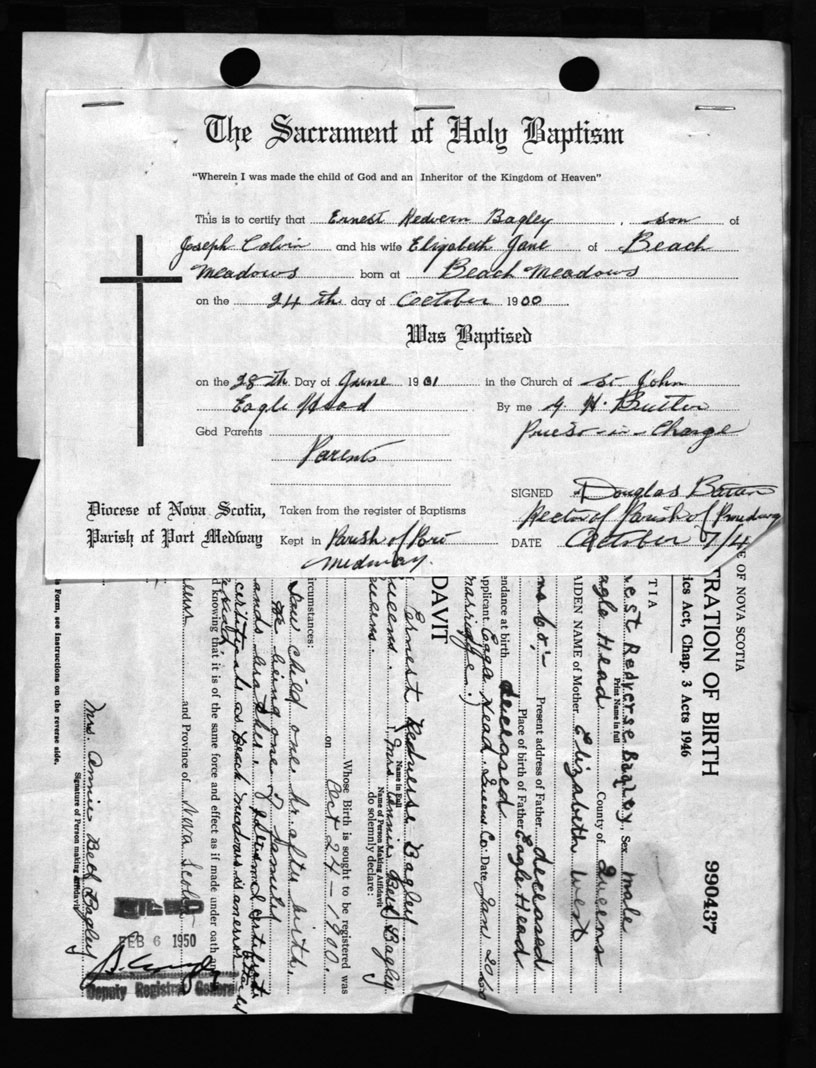 The Sacrament of Holy Baptism
"Wherein I was made the child of God and an Inheritor of the Kingdom of Heaven"
This is to certify that Ernest Redvern Bagley, son of
Joseph Calvin and his wife Elizabeth Jane of Beach
Meadows born at Beach Meadows
on the 24th day of October 1900
Was Baptised
on the 28th Day of June 1901 in the Church of St. John
Eagle Head By me H. Butler
God Parents Priest-in-Charge
Parents
SIGNED Douglas
Diocese of Nova Scotia, Taken from the register of Baptisms Rector of Parish of
Parish of Port Medway Kept in Parish of Port DATE October 7/4
Medway.
E OF NOVA SCOTIA
TRATION OF BIRTH 990437
ics Act, Chap. 3 Acts 1946
TIA
est Redverse Bagley, Sex male
Print Name in full
agle Head County of Queens
AIDEN NAME of Mother Elizabeth West
Present address of Father deceased
Place of birth of Father Eagle Head
endance at birth deceased
applicant Eagle Head, Queens Co. Date Jan. 20/50
marriage.)
DAVIT
Ernest Redverse Bagley
Name in Full
Mrs Annie Beth Bagley
Name of Person Making Affidavit
ueens. do solemnly declare:
Queens.
Whose Birth is sought to be registered was
on Oct 24-1900.
ircumstances:
Saw child one hr after birth.
me being one of family
and knowing that it is of the same force and effect as if made under oath an
and Province of Nova Scotia
Mrs. Annie Beth Bagley
Signature of Person making affidavit
s Form, see Instructions on the reverse side.
FILED
FEB 6 1950
Deputy Registrar General